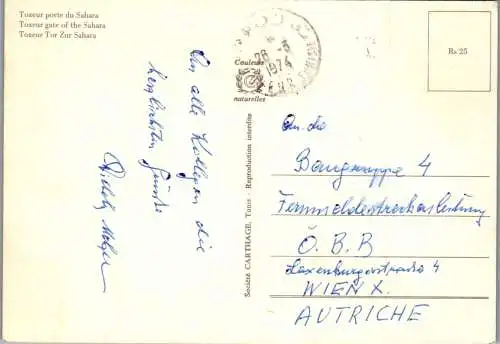 Tozeur porte du Sahara
Tozeur gate of the Sahara
Tozeur Tor Zur Sahara
28 -3
1974
Couleurs
naturelles
Rs 25
An alle Kollegen die
herzlichsten Grüsse
Société CARTHAGE, Tunis - Reproduction interdite
An die
Baugruppe 4
Fernmeldestreckenleitung
Ö.B.B
Laxenburgerstrasse 4
WIEN X.
AUTRICHE